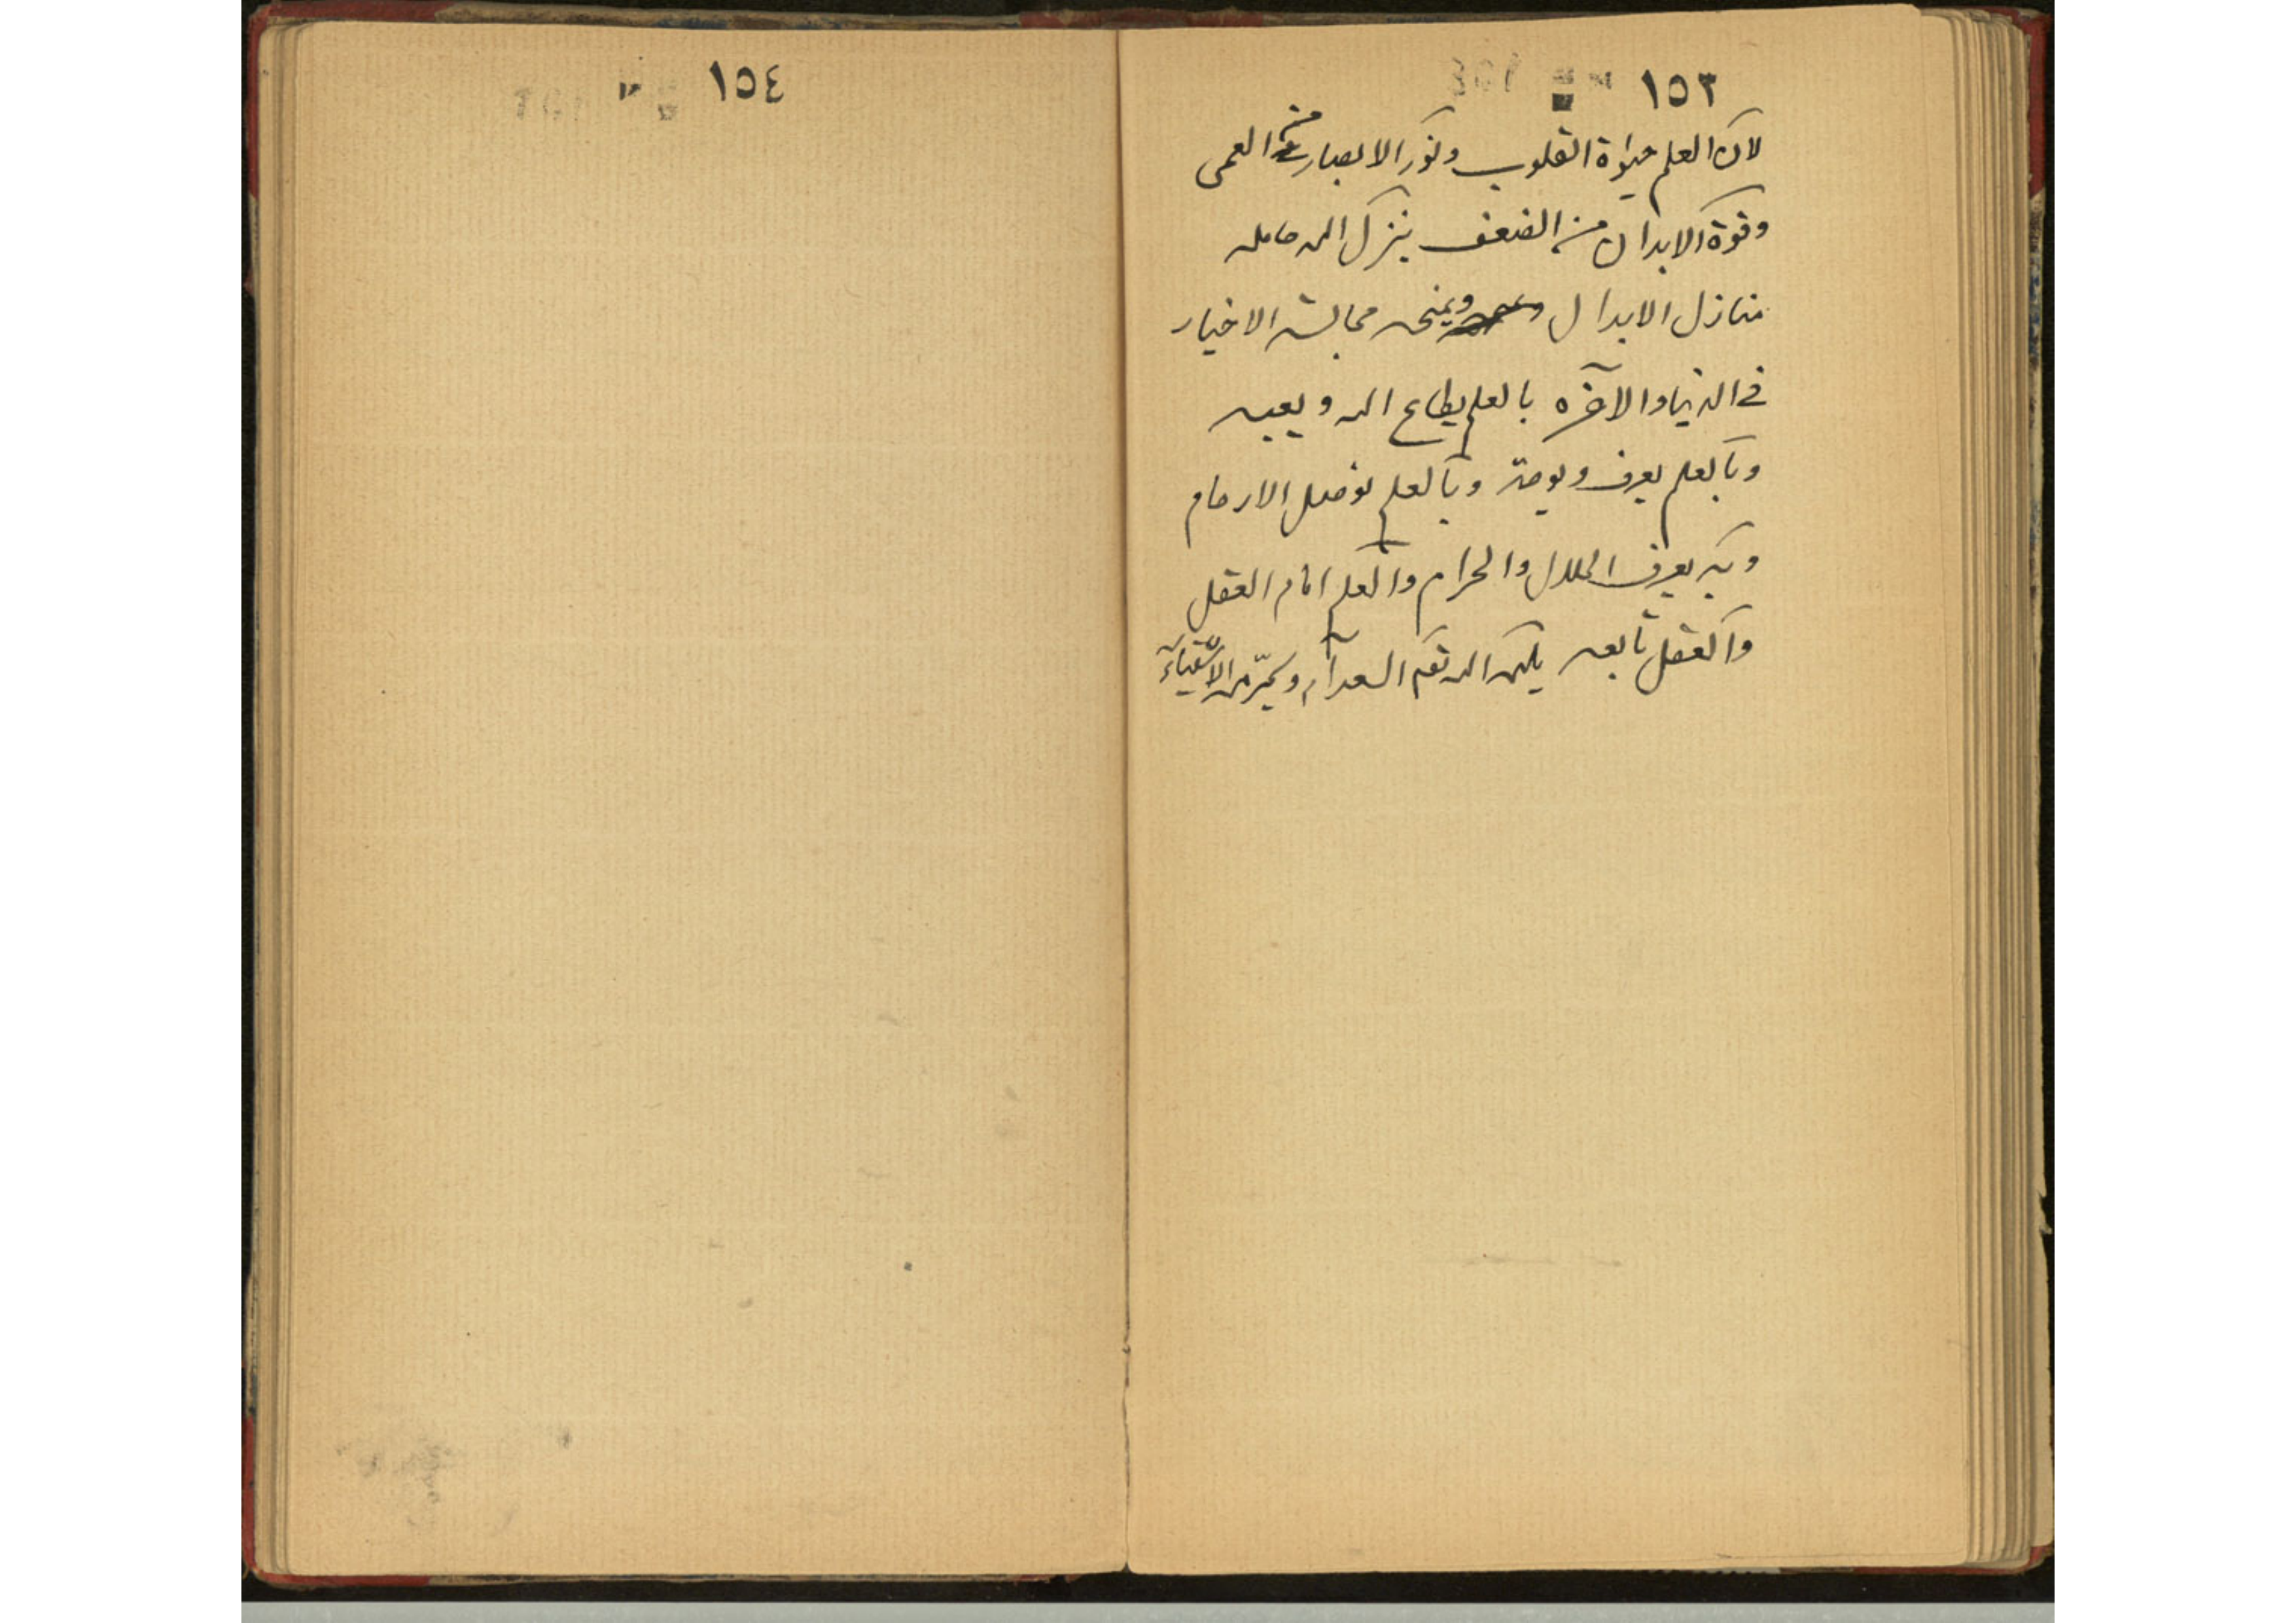 ١٥٣
لان العلم حيوة القلوب ونور الابصار من العمى
وقوة الابدان من الضعف ينزل الله حامله
منازل الابدال ويمنحه مجالسة الاخيار
في الدنيا والآخره بالعلم يطاع الله ويعبد
وبالعلم يعرف ويوحد وبالعلم توصل الارحام
وبه يعرف الحلال والحرام والعلم امام العقل
والعقل تابعه يلهمه الله السعدآء ويحرّمه الاشقياء
١٥٤